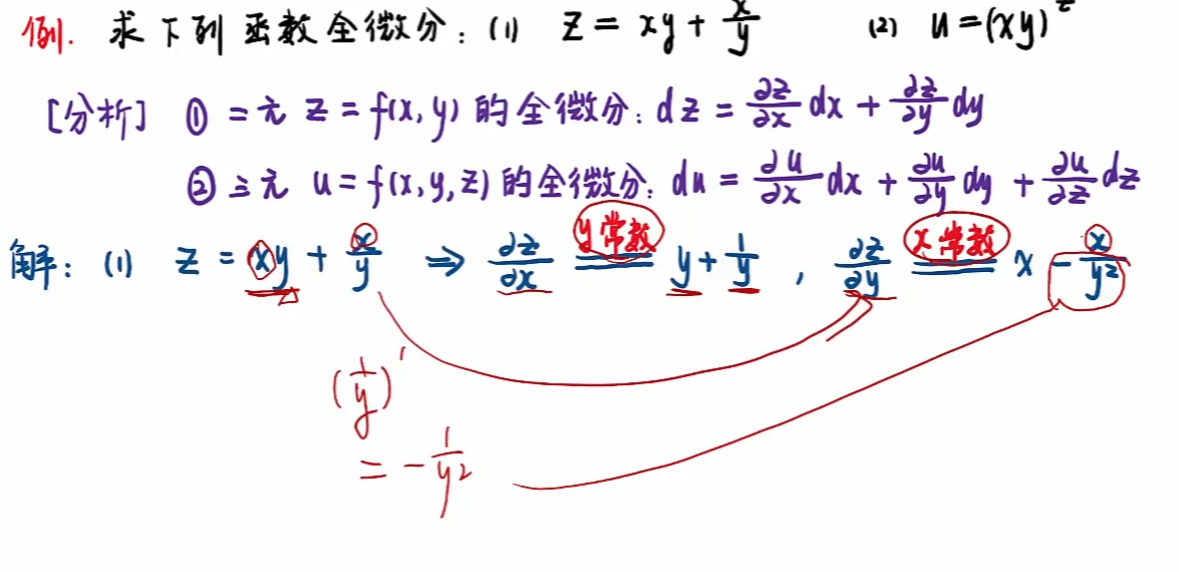 例. 求下列函数全微分: (1) z = xy + x/y (2) u = (xy)^z
[分析] ① 二元 z = f(x, y) 的全微分: dz = ∂z/∂x dx + ∂z/∂y dy
② 三元 u = f(x, y, z) 的全微分: du = ∂u/∂x dx + ∂u/∂y dy + ∂u/∂z dz
解: (1) z = xy + x/y ⇒ ∂z/∂x =(y常数)= y + 1/y , ∂z/∂y =(x常数)= x - x/y²
(1/y)′
= - 1/y²